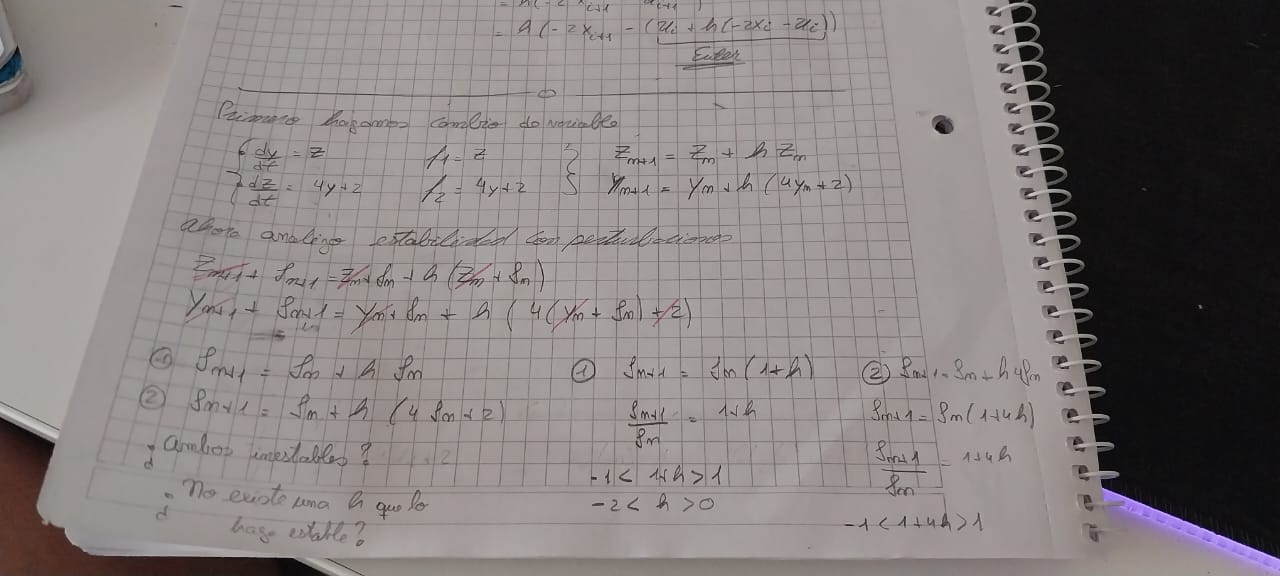 = h(-2x_{i+1}
= h(-2x_{i+1} - (u_i + h(-2x_i - u_i))
Euler
Primero hagamos cambio de variable
{ dy/dt = z    f_1 = z    } z_{n+1} = z_n + h z_n
{ dz/dt = 4y+2    f_2 = 4y+2    } y_{n+1} = y_n + h (4y_n+2)
Ahora analizo estabilidad con perturbaciones
z_{n+1} + δ_{n+1} = z_n + δ_n + h (z_n + δ_n)
y_{n+1} + δ_{n+1} = y_n + δ_n + h (4(y_n + δ_n) + 2)
① δ_{n+1} = δ_n + h δ_n
② δ_{n+1} = δ_n + h (4 δ_n + 2)
¿Ambos inestables?
¿No existe una h que lo
haga estable?
① δ_{n+1} = δ_n (1+h)
δ_{n+1}/δ_n = 1+h
-1 < 1+h > 1
-2 < h > 0
② δ_{n+1} = δ_n + h 4δ_n
δ_{n+1} = δ_n (1+4h)
δ_{n+1}/δ_n = 1+4h
-1 < 1+4h > 1